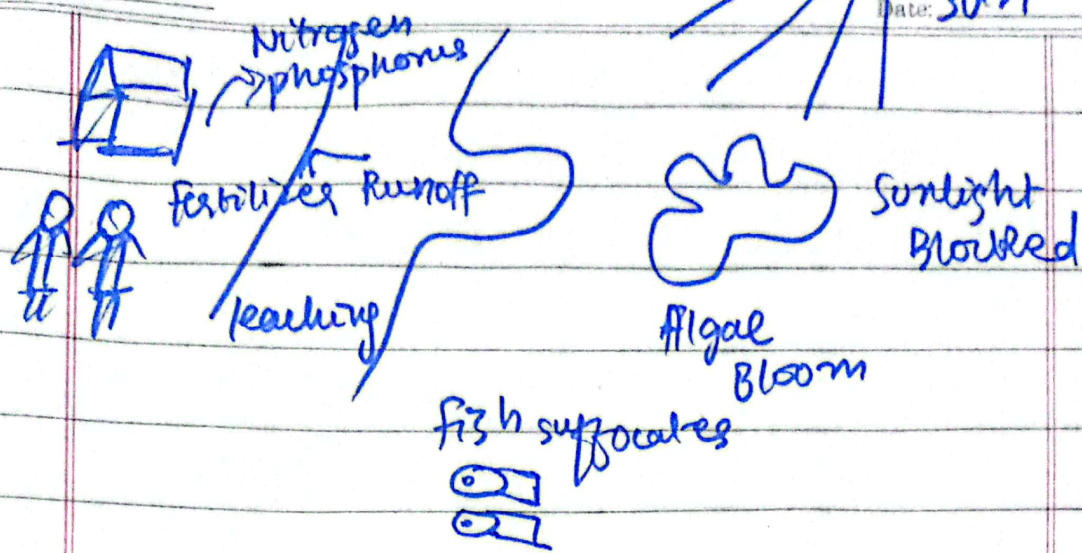 Date:
Nitrogen
phosphorus
Fertilizer Runoff
leaching
Sunlight
Blocked
Algae
Bloom
fish suffocates